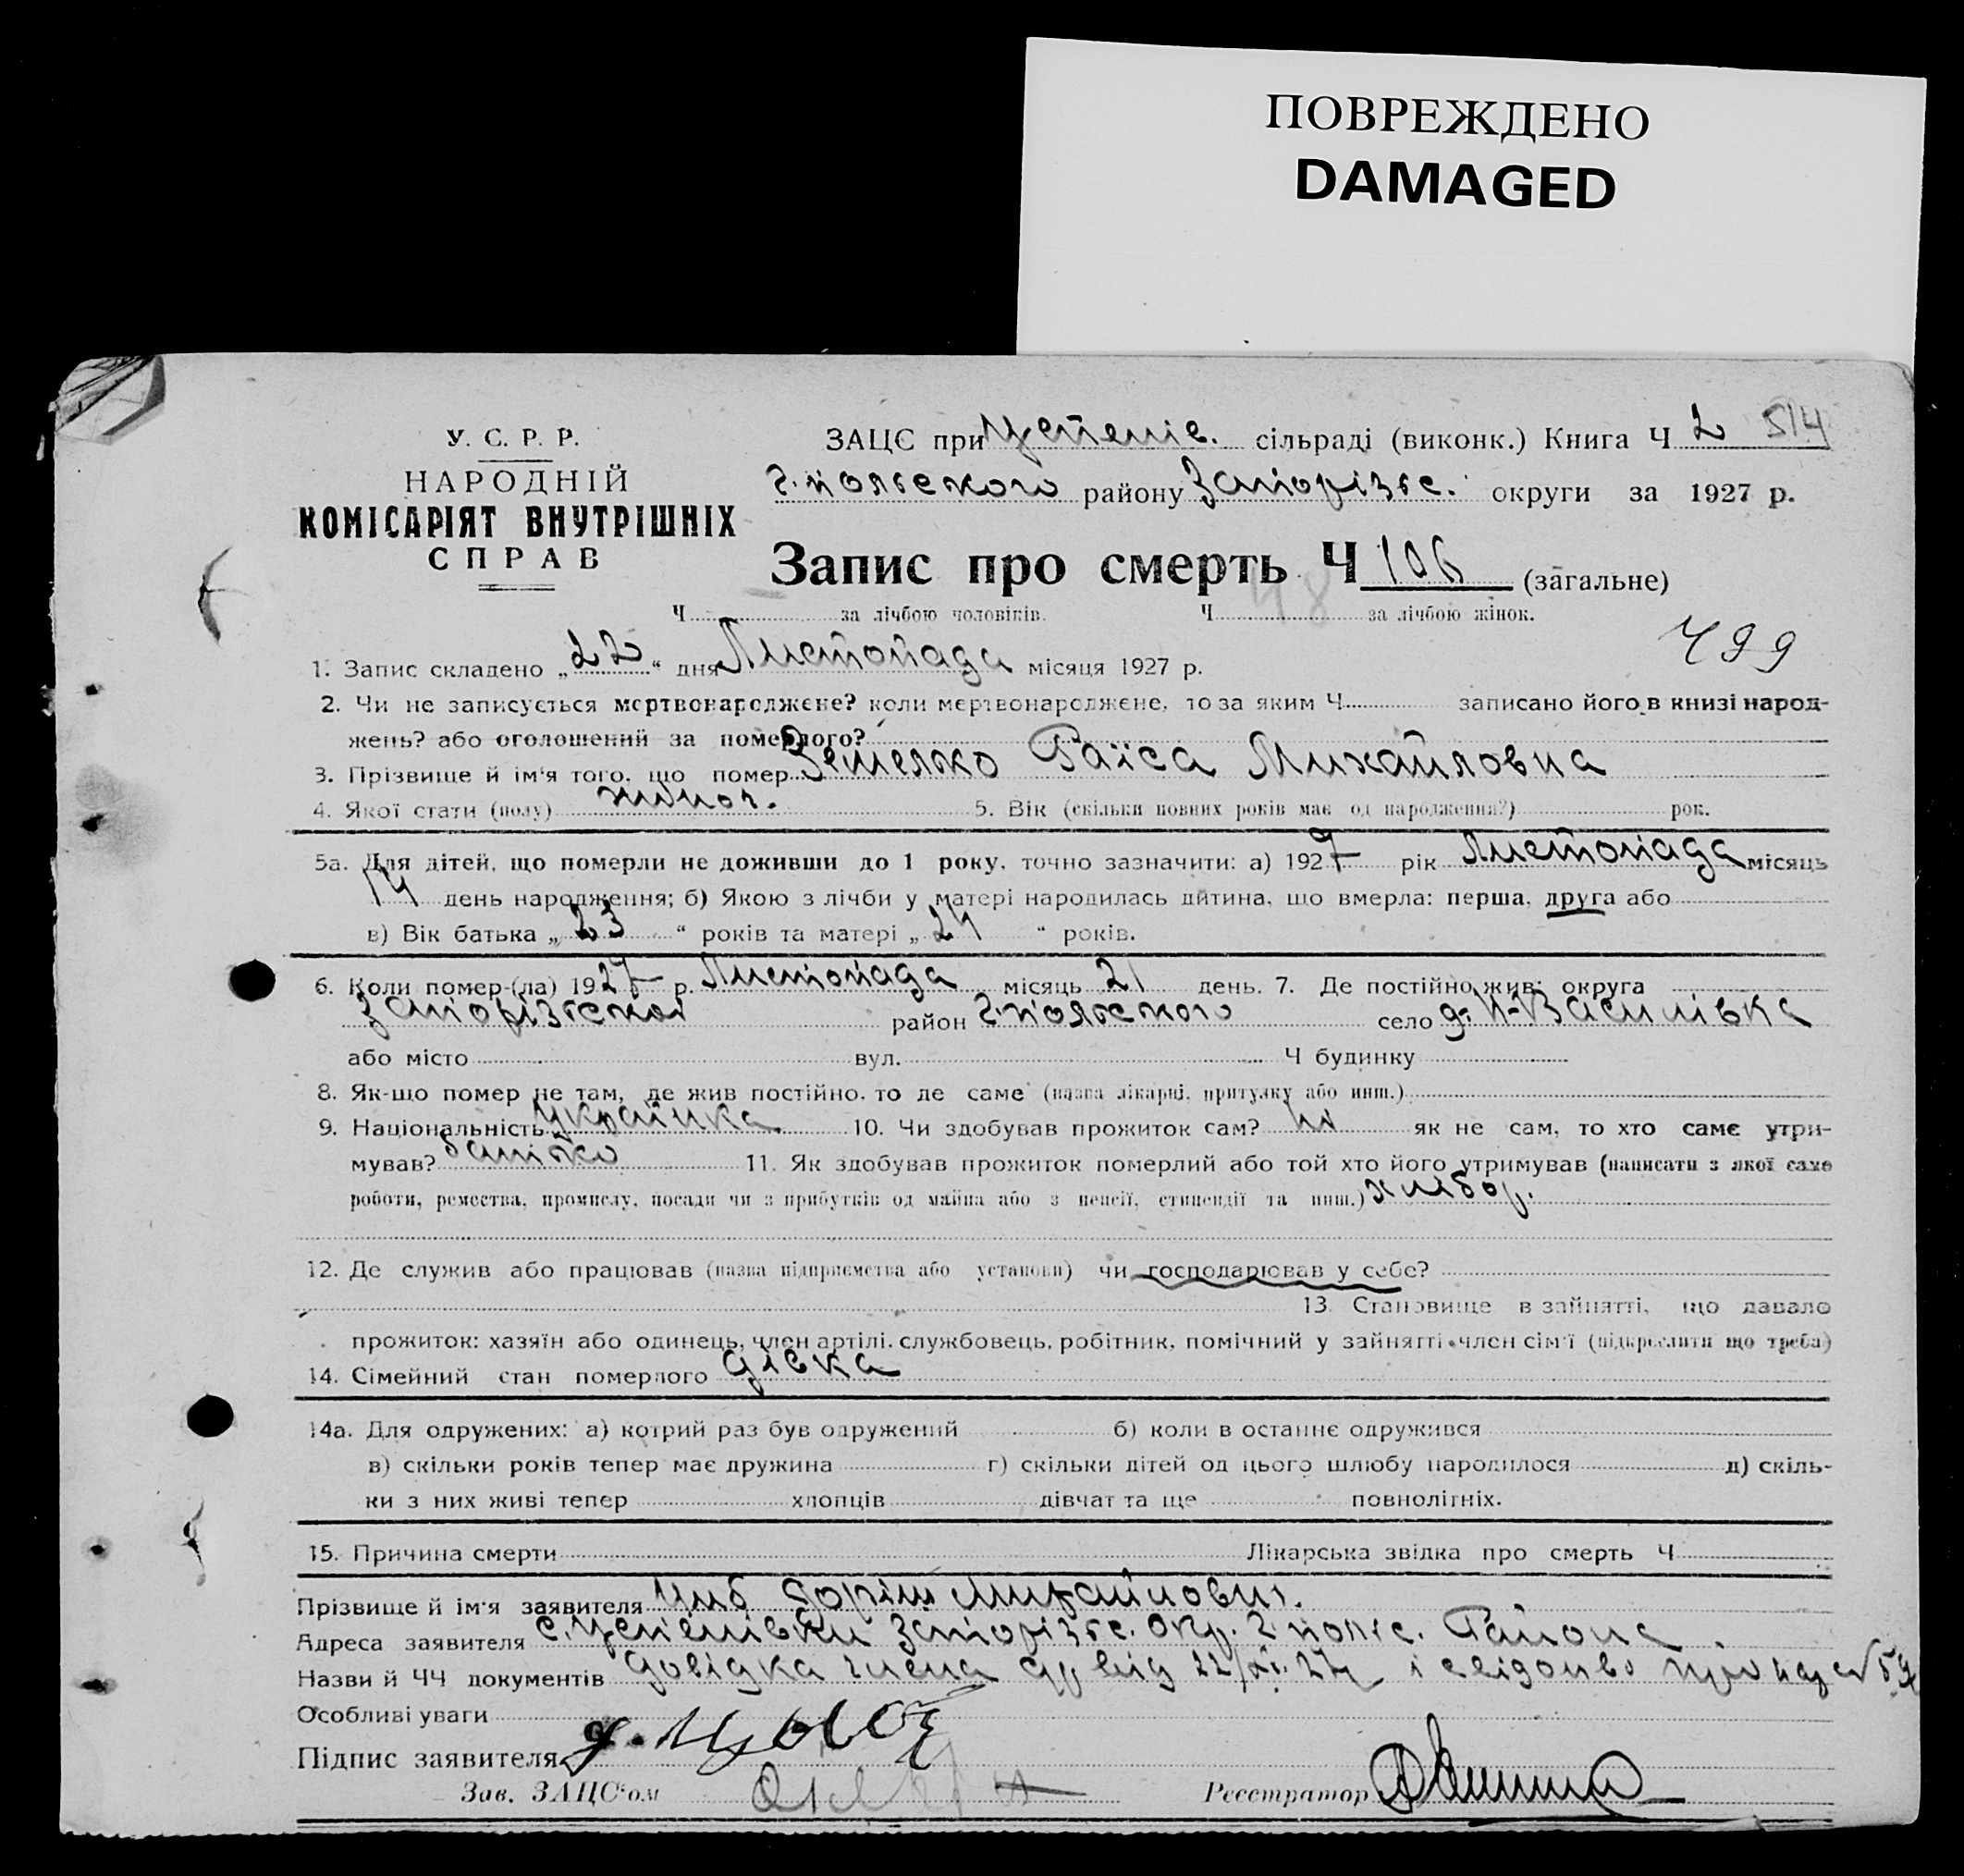 ПОВРЕЖДЕНО
DAMAGED
У. С. Р. Р.
НАРОДНІЙ
КОМІСАРІЯТ ВНУТРІШНІХ
СПРАВ
ЗАЦС при сільраді (виконк.) Книга Ч 2 514
г.польского району Запорізьс. округи за 1927 р.
Запис про смерть Ч 106 (загальне)
Ч за лічбою чоловіків. Ч 48 за лічбою жінок.
499
1. Запис складено „22“ дня Листопада місяця 1927 р.
2. Чи не записується мертвонароджене? коли мертвонароджене, то за яким Ч записано його в книзі народ-
жень? або оголошений за померлого?
3. Прізвище й ім'я того, що помер Земелько Раїса Михайловна
4. Якої стати (полу) жіноч. 5. Вік (скільки повних років має од народження?) рок.
5а. Для дітей, що померли не доживши до 1 року, точно зазначити: а) 1927 рік Листопада місяць
14 день народження; б) Якою з лічби у матері народилась дитина, що вмерла: перша, друга або
в) Вік батька „23“ років та матері „24“ років.
6. Коли помер-(ла) 1927 р. Листопада місяць 21 день. 7. Де постійно жив: округа
Запорізьской район г.польського село д. Н-Василівка
або місто вул. Ч будинку
8. Як-що помер не там, де жив постійно, то де саме (назва лікарні, притулку або инш.)
9. Національність українка 10. Чи здобував прожиток сам? ні як не сам, то хто саме утри-
мував? батько 11. Як здобував прожиток померлий або той хто його утримував (написати з якої саме
роботи, ремества, промислу, посади чи з прибутків од майна або з пенсії, стипендії та инш.) хлібор.
12. Де служив або працював (назва підприємства або установи) чи господарював у себе?
13. Становище в зайнятті, що давало
прожиток: хазяїн або одинець, член артілі, службовець, робітник, помічний у зайнятті член сім'ї (підкреслити що треба)
14. Сімейний стан померлого дівка
14а. Для одружених: а) котрий раз був одружений б) коли в останнє одружився
в) скільки років тепер має дружина г) скільки дітей од цього шлюбу народилося д) скіль-
ки з них живі тепер хлопців дівчат та ще повнолітніх.
15. Причина смерти Лікарська звідка про смерть Ч
Прізвище й ім'я заявителя Михайлович.
Адреса заявителя с. Запорізьс. Окр. г.польс. Района
Назви й ЧЧ документів Довідка члена від 22/XI.27 і свідоцтво про нар.
Особливі уваги
Підпис заявителя
Зав. ЗАЦС'ом
Реєстратор